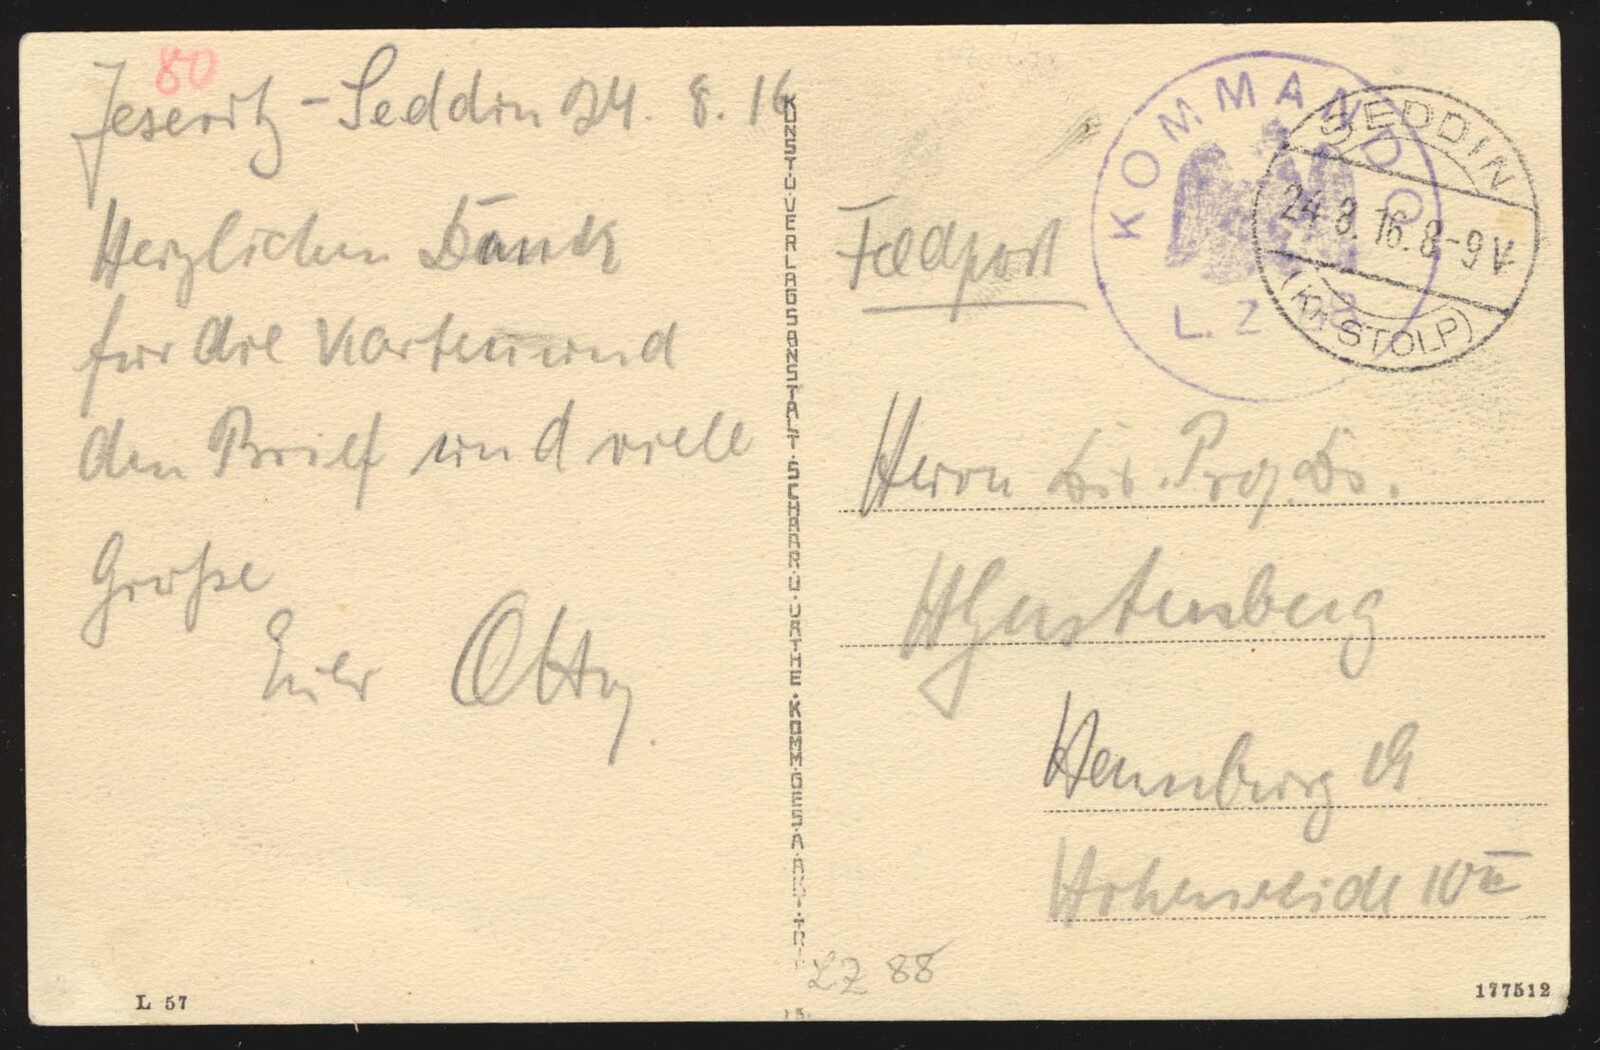 80
Jeseritz-Seddin 24. 8. 16
Herzlichen Dank
für die Karten und
den Brief und viele
Grüße
Euer Otto.
L 57
KUNST.U.VERLAGSANSTALT.SCHAAR.U.DATHE.KOMM.GES.A.AKT.TRI
KOMMANDO
L. Z. 8
SEDDIN
24 8. 16. 8-9 V
(Kr. STOLP)
Feldpost
Herrn Prof. Dr.
Gerstenberg
Hamburg 19
Hohenweide
LZ 88
177512